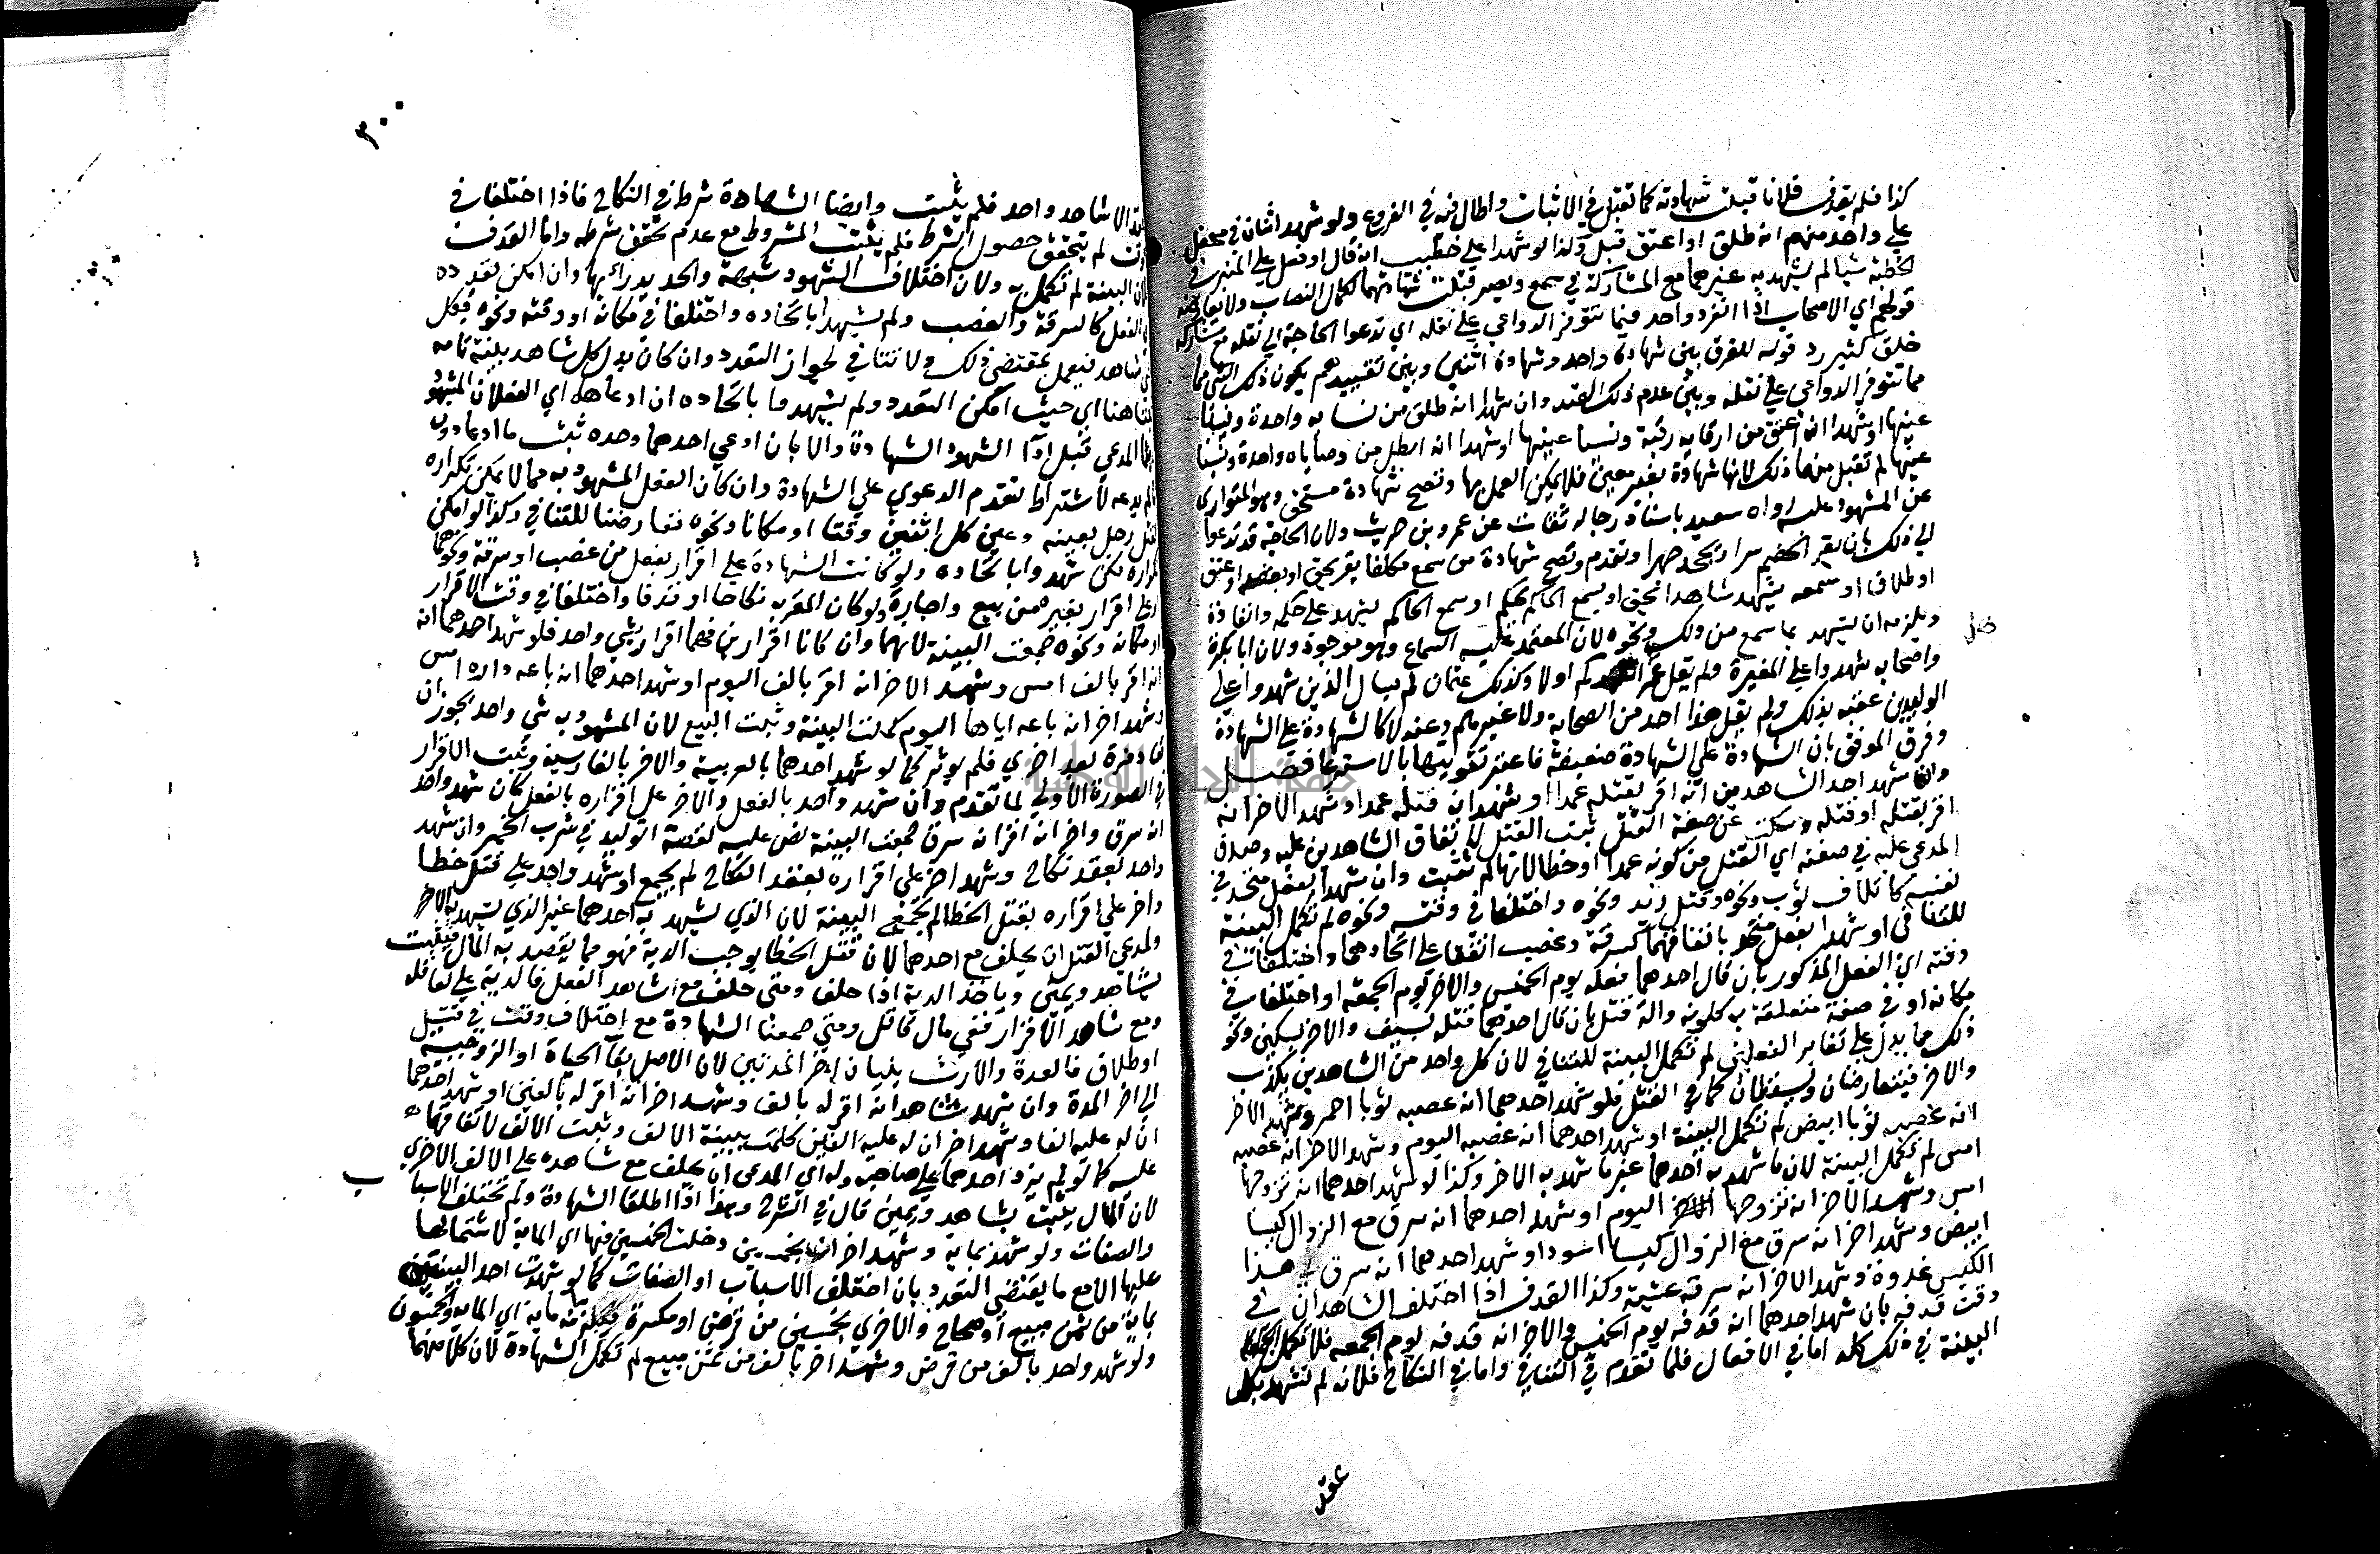 كذا فلم يقذف فلانا قبلت شهادته كما تقبل في الاثبات واطال فيه في الفروع ولو شهد اثنان في محفل
علي واحد منهم انه طلق او اعتق قبل وكذا لو شهدا علي خطيب انه قال او فعل علي المنبر في
الخطبة شيا لم يشهد به غيرهما مع المشاركة في سمع وبصر قبلت شهادتهما لكمال النصاب ولا يعارضه
قولهم اي الاصحاب اذا انفرد واحد فيما تتوفر الدواعي علي نقله اي تدعوا الحاجة الي نقله مع مشاركة
خلق كثير رد قوله للفرق بين شهادة واحد وشهادة اثنين وبين تقييدهم بكون ذلك الشي مما
مما تتوفر الدواعي علي نقله وبين عدم ذلك القيد وان شهدا انه طلق من نسايه واحدة ونسيا
عينها او شهدا انه اعتق من ارقايه رقبة ونسيا عينها او شهدا انه ابطل من وصاياه واحدة ونسيا
عينها لم تقبل منهما ذلك لانها شهادة بغير معين فلا يمكن العمل بها وتصح شهادة مستخف وهو المتواري
عن المشهود عليه رواه سعيد باسناد رجاله ثقات عن عمرو بن حريث ولان الحاجة قد تدعوا
الي ذلك بان يقر الخصم سرا ويجحد جهرا وتقدم وتصح شهادة من سمع مكلفا يقر بحق او بعقد او عتق
او طلاق او سمعه يشهد شاهدا بحق او يسمع الحاكم يحكم او سمع الحاكم يشهد علي حكمه وانفاذه
ويلزمه ان يشهد بما سمع من ذلك ونحوه لان المعتمد عليه السماع وهو موجود ولان ابا بكرة
واصحابه شهدوا علي المغيرة ولم يقل عمر اشهدكم او لا وكذلك عثمان لم يسال الذين شهدوا علي
الوليد بن عقبه بذلك ولم يقل هذا احد من الصحابة ولا غيرهم وعنه لا كالشهادة علي الشهادة
وفرق الموفق بان الشهادة علي الشهادة ضعيفة فاعتبر تقويتها بالاسترعا فصل
وان شهد احد الشاهدين انه اقر بقتله عمدا او شهد انه قتله عمدا وشهد الاخر انه
اقر بقتله او قتله وسكت عن صفة القتل ثبت القتل لاتفاق الشاهدين عليه وصدق
المدعي عليه في صفته اي القتل من كونه عمدا او خطا لانها لم تثبت وان شهدا بفعل متحد في
نفسه كاتلاف ثوب ونحوه وقتل زيد ونحوه واختلفا في وقته ونحوه لم تكمل البينة
للتنافي او شهدا بفعل متحد باتفاقهما كسرقة وغصب اتفقا علي اتحادهما واختلفا في
وقته اي الفعل المذكور بان قال احدهما فعله يوم الخميس والاخر يوم الجمعة او اختلفا في
مكانه او في صفة متعلقة به كلونه والة قتل بان قال احدهما قتله بسيف والاخر بسكين ونحو
ذلك مما يدل علي تغاير الفعلين لم تكمل البينة للتنافي لان كل واحد من الشاهدين يكذب
والاخر فيتعارضان ويسقطان كما في القتل فلو شهد احدهما انه غصبه ثوبا احمر وشهد الاخر
انه غصبه ثوبا ابيض لم تكمل البينة او شهد احدهما انه غصبه اليوم وشهد الاخر انه غصبه
امس لم تكمل البينة لان ما شهد به احدهما غير ما شهد به الاخر وكذا لو شهد احدهما انه تزوجها
امس وشهد الاخر انه تزوجها اليوم او شهد احدهما انه سرق مع الزوال كيسا
ابيض وشهد اخر انه سرق مع الزوال كيسا اسود او شهد احدهما انه سرق هذا
الكيس غدوة وشهد الاخر انه سرقه عشية وكذا القذف اذا اختلف الشاهدان في
وقت قذفه بان شهد احدهما انه قذفه يوم الخميس والاخر انه قذفه يوم الجمعه فلا تكمل
البينة في ذلك كله اما في الافعال فلما تقدم في التنافي واما في النكاح فلانه لم يشهد بكل
عقد
٣٠٠
الا شاهد واحد فلم يثبت وايضا الشهادة شرط في النكاح فاذا اختلفا في
لم يتحقق حصول الشرط فلم يثبت المشروط مع عدم تحقق شرطه واما القذف
البينة لم تكمل به ولان اختلاف الشهود شبهة والحد يدرا بها وان امكن تعدده
الفعل كالسرقة والغصب ولم يشهدا باتحاده واختلفا في مكانه او وقته ونحوه فكل
شاهد فيعمل بمقتضي ذلك ولا تنافي لجواز التعدد وان كان بدل كل شاهد بينة تامه
هنا اي حيث امكن التعدد ولم يشهدوا باتحاده ان ادعاهما اي الفعلان المشهود
المدعي قبل ادا الشهود الشهادة والا بان ادعي احدهما وحده ثبت ما ادعاه دون
لم يدعه لاشتراط تقدم الدعوي علي الشهادة وان كان الفعل المشهود به مما لا يمكن تكراره
كقتل رجل بعينه وعين كل اثنين وقتا او مكانا ونحوه تعارضتا للتنافي وكذا لو امكن
تكراره لكن شهدوا باتحاده ولو كانت الشهادة علي اقرار بفعل من غصب او سرقة ونحوهما
او علي اقرار بغيره من بيع واجارة ولو كان المقر به نكاحا او قذفا واختلفا في وقت الاقرار
او مكانه ونحوه جمعت البينة لانهما وان كانا اقرارين فهما اقرار بشي واحد فلو شهد احدهما انه
انه اقر بالف امس وشهد الاخر انه اقر بالف اليوم او شهد احدهما انه باعه داره امس
وشهد اخر انه باعه اياها اليوم كملت البينة وثبت البيع لان المشهود به شي واحد يجوز ان
يعاد مرة بعد اخري فلم يوثر كما لو شهد احدهما بالعربية والاخر بالفارسية وثبت الاقرار
في الصورة الاولي لما تقدم وان شهد واحد بالفعل والاخر علي اقراره بالفعل كان شهد واحد
انه سرق واخر انه اقر انه سرق جمعت البينة نص عليه لقصة الوليد في شرب الخمر وان شهد
واحد بعقد نكاح وشهد اخر علي اقراره بعقد النكاح لم يجمع او شهد واحد علي قتل خطا
واخر علي اقراره بقتل الخطا لم تجمع البينة لان الذي يشهد به احدهما غير الذي يشهد به الاخر
ولمدعي القتل ان يحلف مع احدهما لان قتل الخطا يوجب الدية فهو مما يقصد به المال فيثبت
بشاهد ويمين وياخذ الدية اذا حلف ومتي حلف مع شاهد الفعل فالدية علي العاقلة
ومع شاهد الاقرار ففي مال القاتل ومتي جمعنا الشهادة مع اختلاف وقت في قتيل
او طلاق فالعدة والارث يليان اخر المدتين لان الاصل بقا الحياة او الزوجية
الي اخر المدة وان شهد شاهد انه اقر له بالف وشهد اخر انه اقر له بالفين او شهد احدهما
ان له عليه الفا وشهد اخر ان له عليه الفين كملت بينة الالف وثبت الالف لاتفاقهما
عليه كما لو لم يزد احدهما علي صاحبه وله اي المدعي ان يحلف مع شاهده علي الالف الاخري
لان المال يثبت بشاهد ويمين قال في الشرح وهذا اذا اطلقا الشهادة ولم تختلف الاسباب
والصفات ولو شهد بماية وشهد اخران بخمسين دخلت الخمسين فيها اي الماية لاشتمالها
عليها الا مع ما يقتضي التعدد بان اختلف الاسباب او الصفات كما لو شهدت احد البينتين
بماية من ثمن مبيع او صحاح والاخري بخمسين من قرض او مكسرة فيلزمه ماية اي الماية والخمسون
ولو شهد واحد بالف من قرض وشهد اخر بالف من ثمن مبيع لم تكمل الشهادة لان كلا منهما